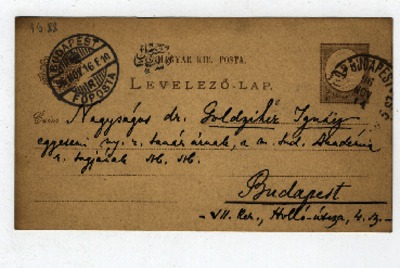 BUDAPEST
FŐPOSTA
MAGYAR KIR. POSTA.
LEVELEZŐ-LAP.
BUDAPEST
Czím Nagyságos dr. Goldziher Ignácz
egyetemi ny. r. tanár úrnak, a m. tud. Akadémia
r. tagjának stb. stb.
Budapest
VII. Ker., Holló-útcza, 4. sz.